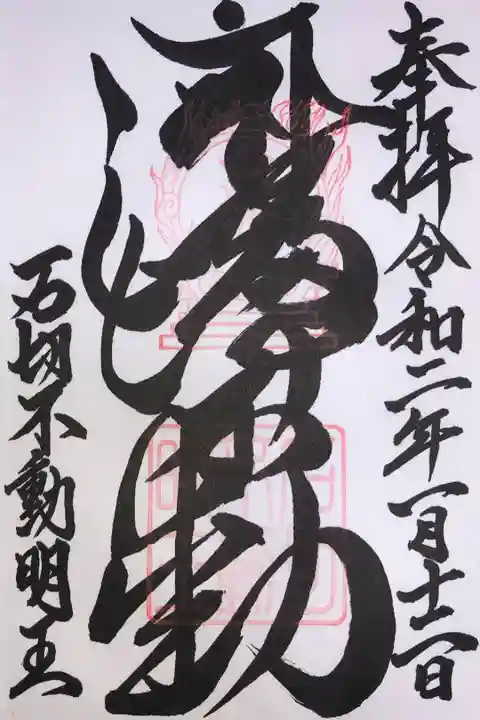 奉拝 令和二年一月十二日
不動
石切不動明王